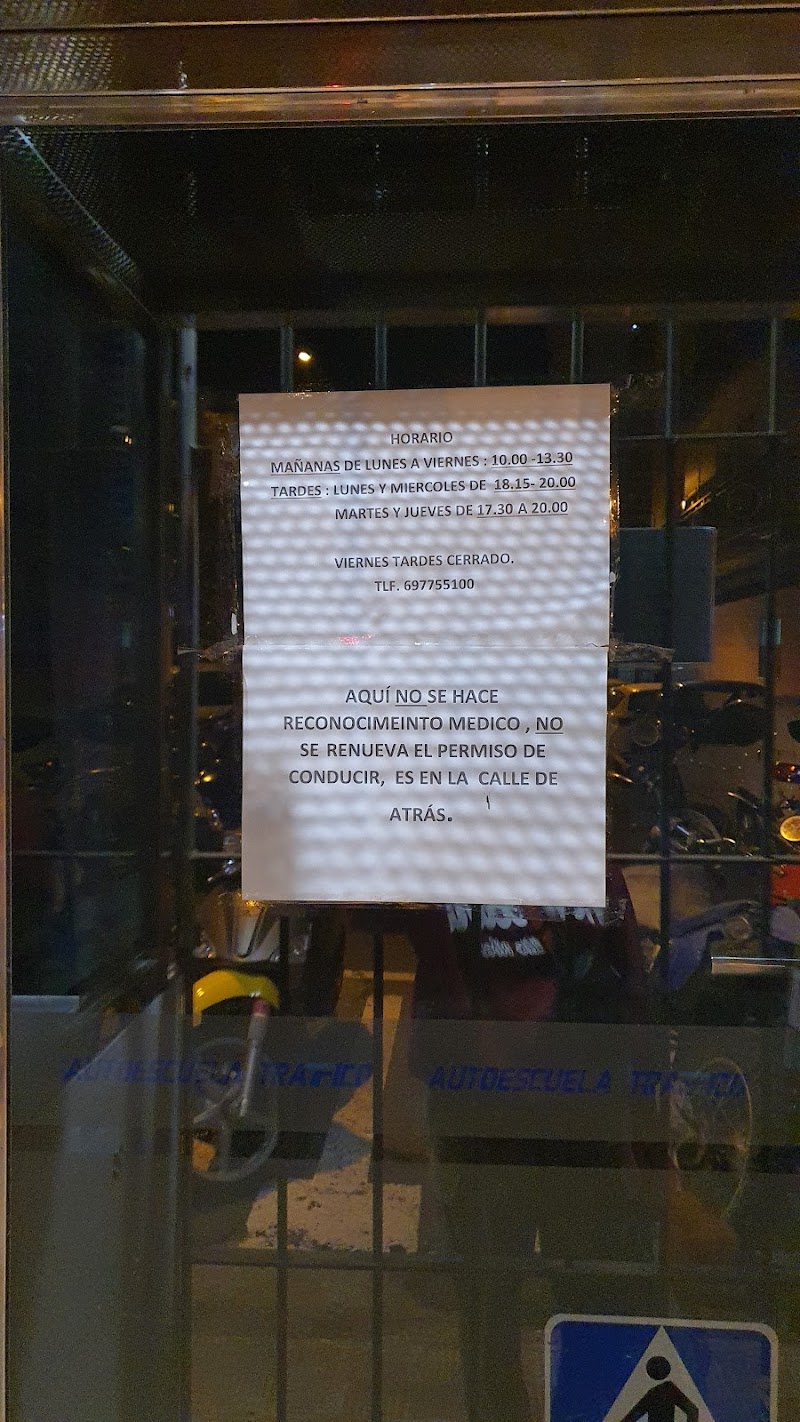 HORARIO
MAÑANAS DE LUNES A VIERNES : 10.00 -13.30
TARDES : LUNES Y MIERCOLES DE 18.15- 20.00
MARTES Y JUEVES DE 17.30 A 20.00
VIERNES TARDES CERRADO.
TLF. 697755100
AQUÍ NO SE HACE
RECONOCIMEINTO MEDICO , NO
SE RENUEVA EL PERMISO DE
CONDUCIR, ES EN LA CALLE DE
ATRÁS.
AUTOESCUELA TRAFICO AUTOESCUELA TRAFICO